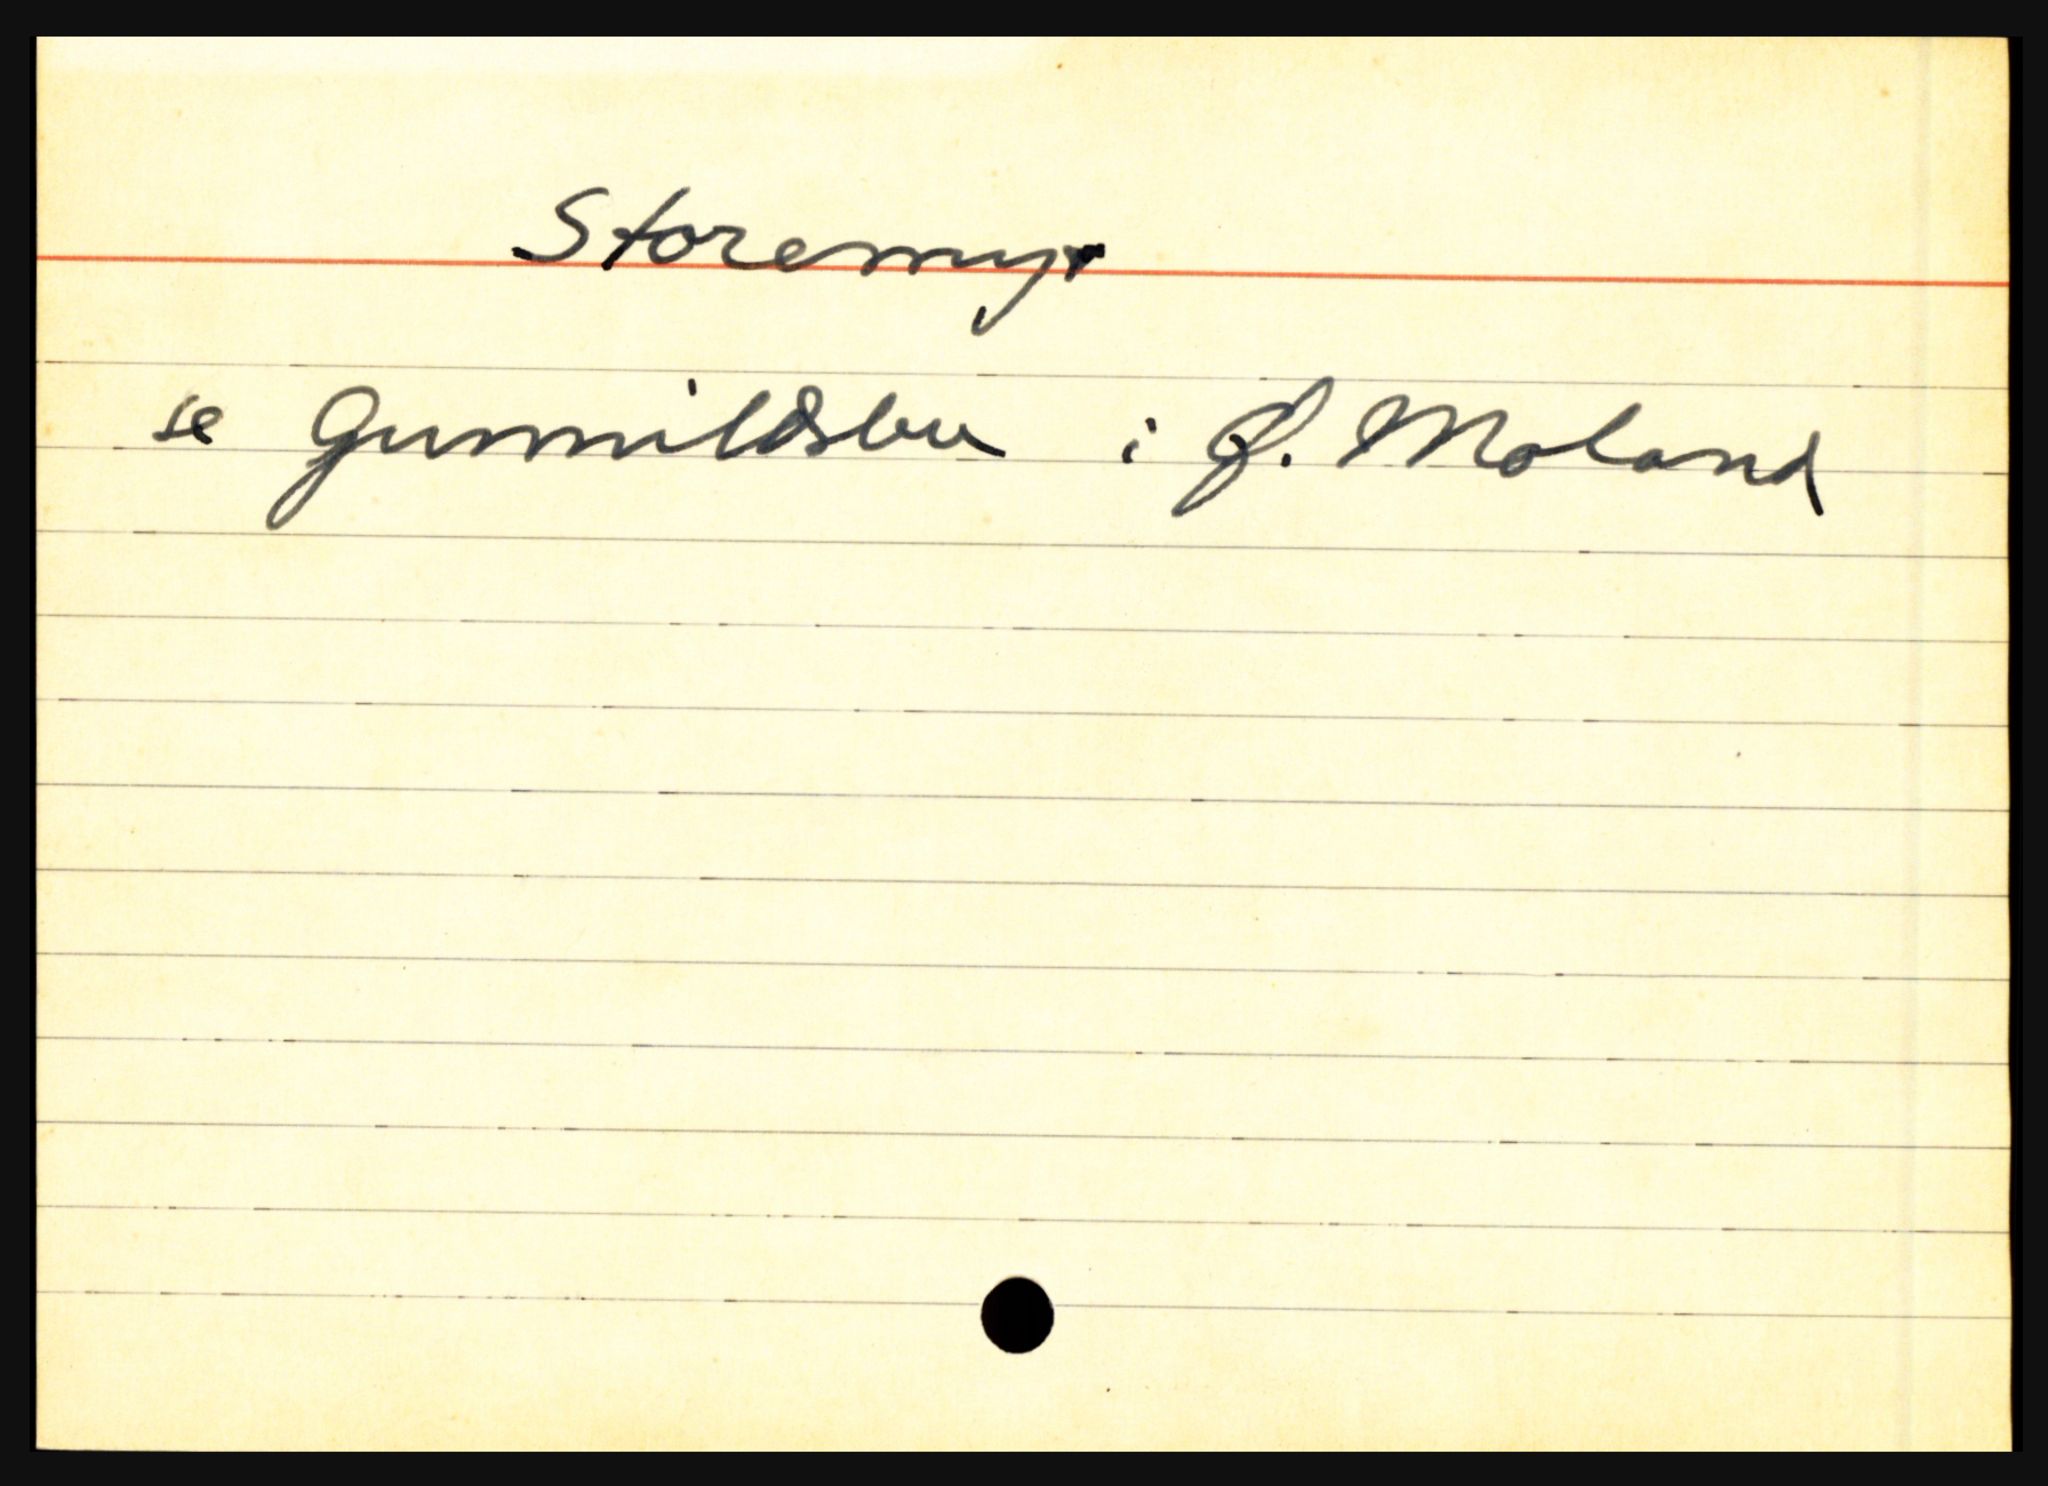 Storemyr
se Gunnildsbu i Ø. Moland